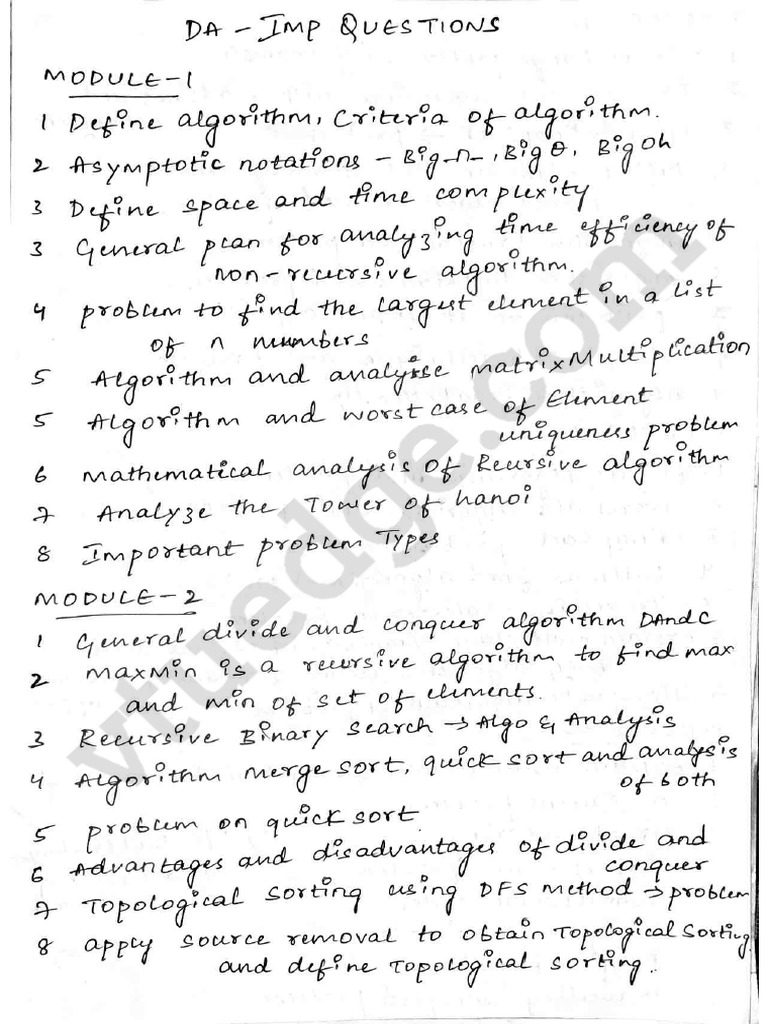 DA - IMP QUESTIONS
MODULE-1
1 Define algorithm, Criteria of algorithm.
2 Asymptotic notations - Big-Ω-, Big θ, Big Oh
3 Define space and time complexity
3 General plan for analyzing time efficiency of
non-recursive algorithm.
4 problem to find the largest element in a list
of n numbers
5 Algorithm and analyise matrix Multiplication
5 Algorithm and worst case of Element
uniqueness problem
6 mathematical analysis of Recursive algorithm
7 Analyze the Tower of hanoi
8 Important problem Types
MODULE-2
1 General divide and conquer algorithm DAndC
2 maxMin is a recursive algorithm to find max
and min of set of elements.
3 Recursive Binary search → Algo & Analysis
4 Algorithm merge sort, quick sort and analysis
of both
5 problem on quick sort
6 Advantages and disadvantages of divide and
conquer
7 Topological sorting using DFS method → problem
8 apply source removal to obtain Topological sorting
and define Topological sorting.
vtuedge.com